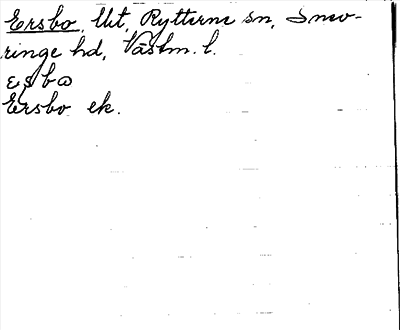 Ersbo, lht, Rytterne sn, Snev-
ringe hd, Västm. l.
Ersbo ek.